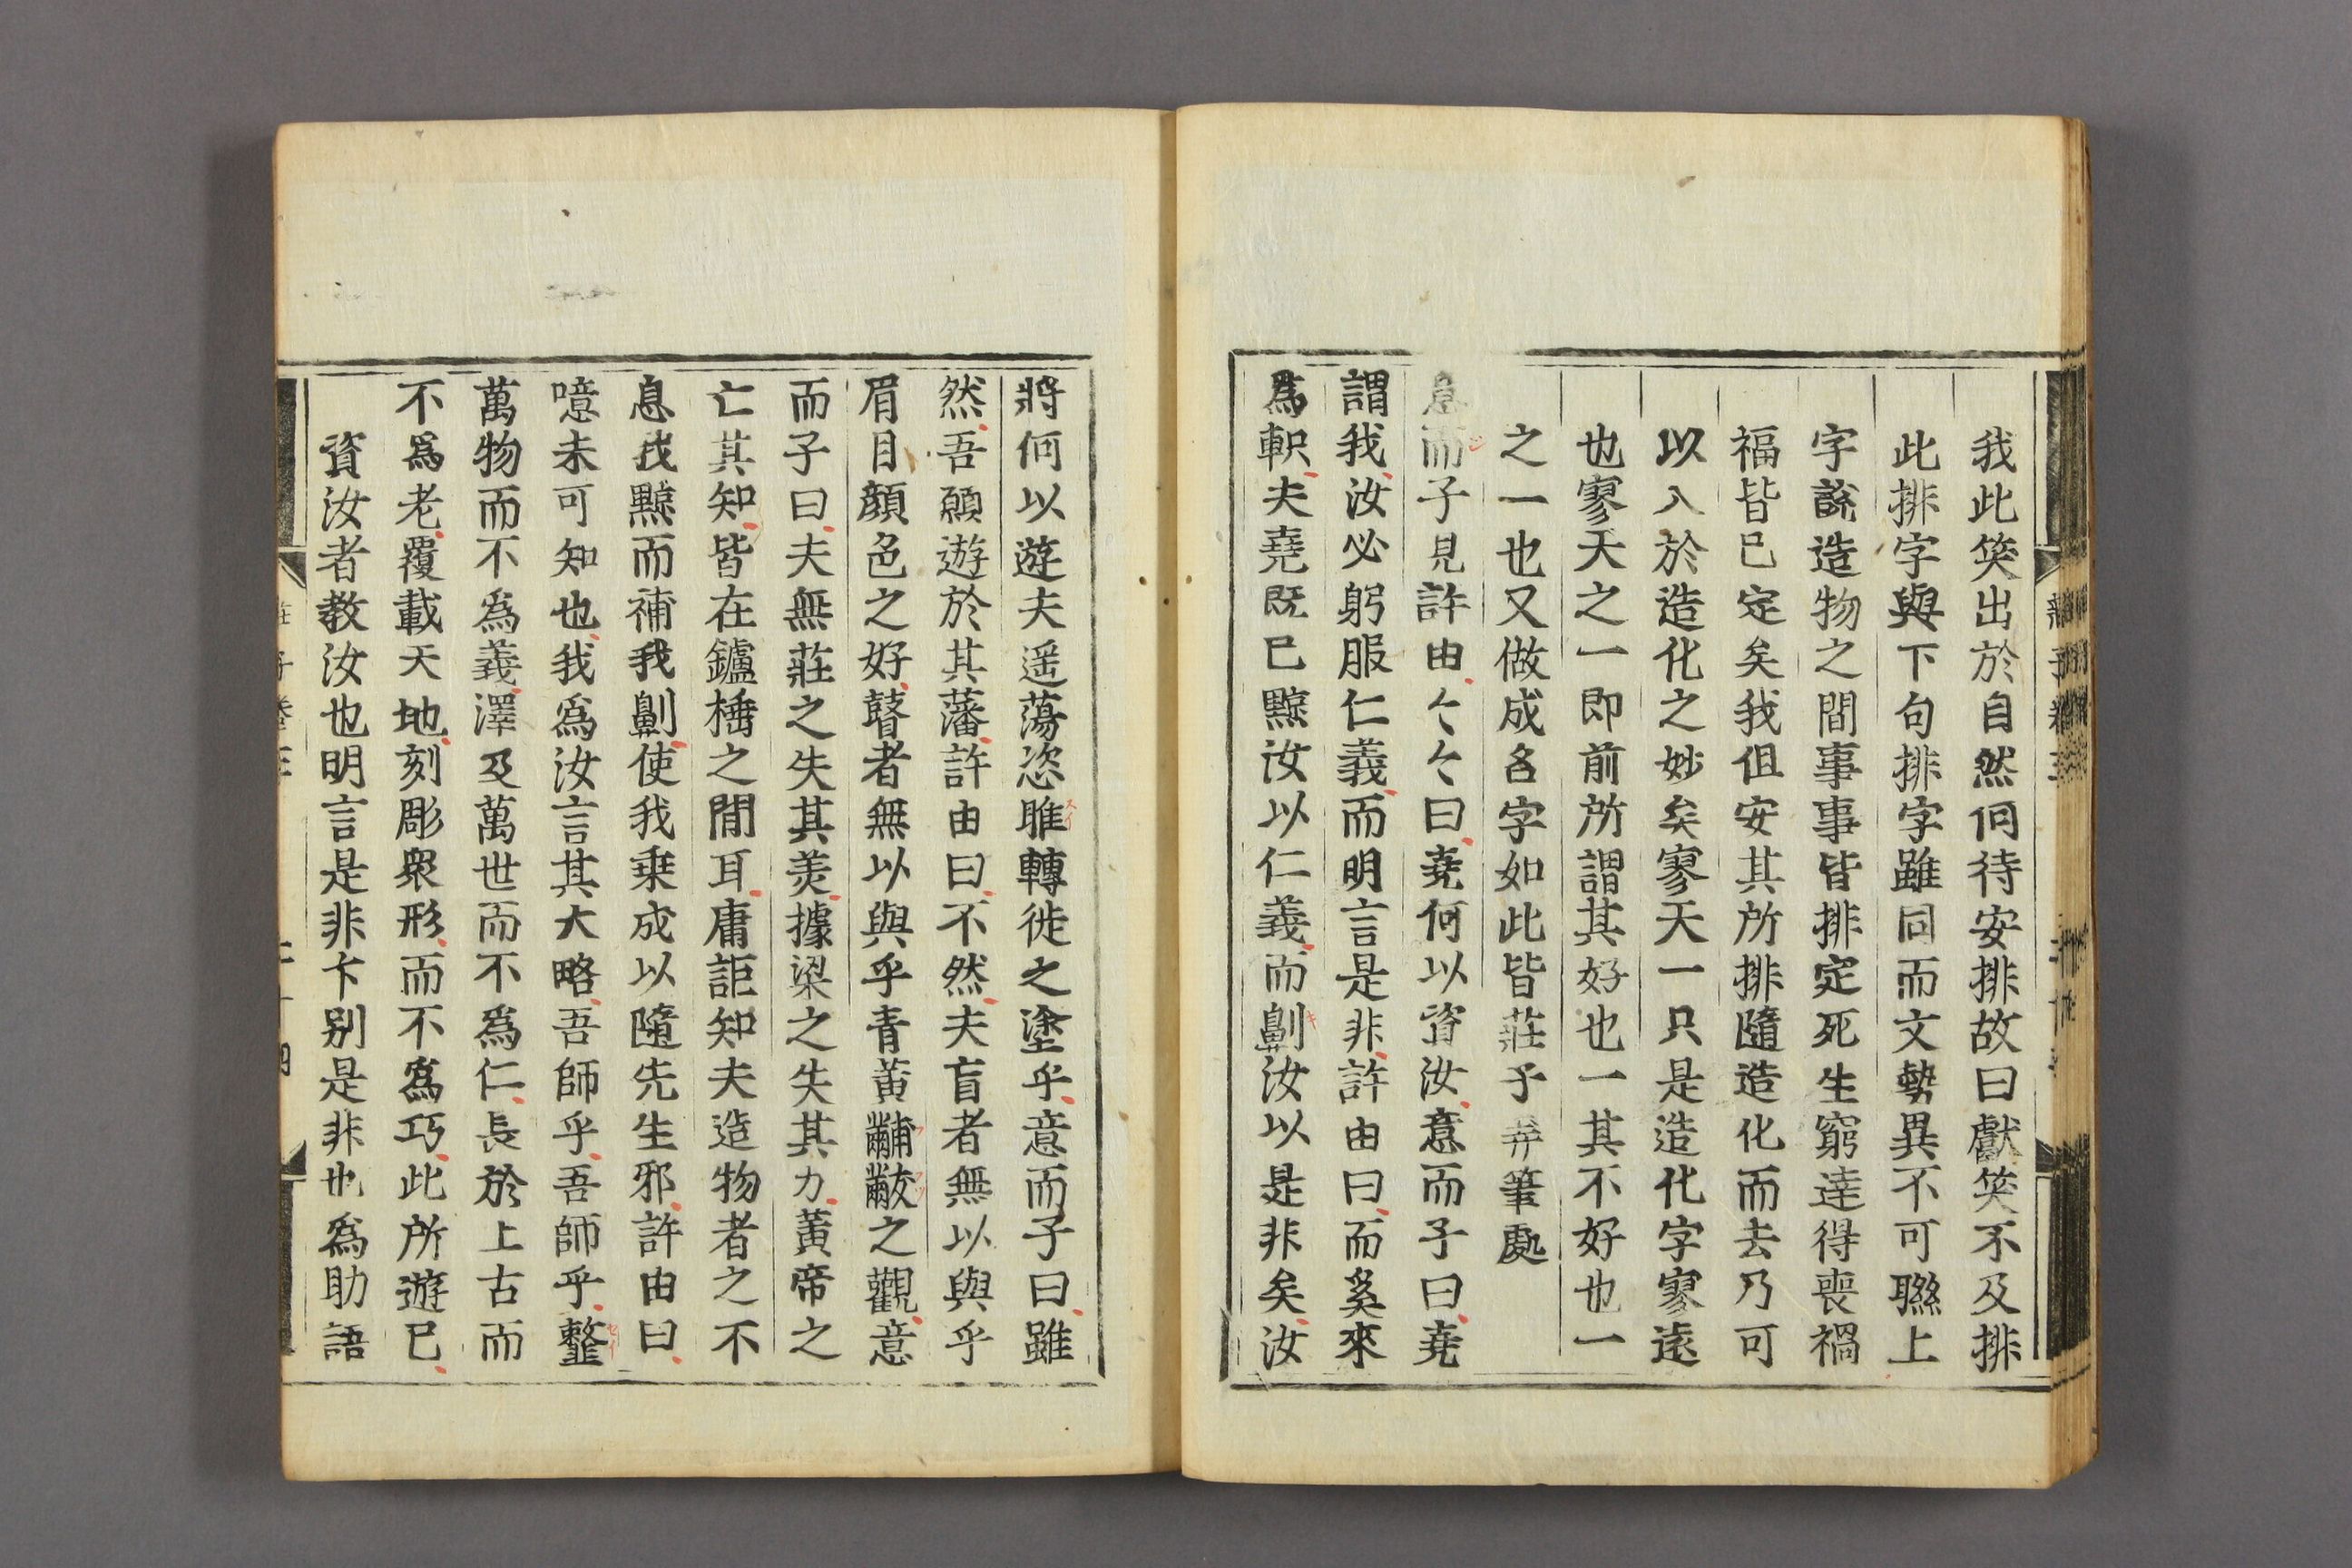 我此笑出於自然何待安排故曰獻笑不及排
此排字與下句排字雖同而文勢異不可聯上
字說造物之間事事皆排定死生窮達得喪禍
福皆已定矣我但安其所排隨造化而去乃可
以入於造化之妙矣寥天一只是造化字寥遠
也寥天之一即前所謂其好也一其不好也一
之一也又做成名字如此皆莊子弄筆處
意而子見許由〻〻曰堯何以資汝意而子曰堯
謂我汝必躬服仁義而明言是非許由曰而奚來
爲軹夫堯既已黥汝以仁義而劓汝以是非矣汝
將何以遊夫遥蕩恣睢轉徙之塗乎意而子曰雖
然吾願遊於其藩許由曰不然夫盲者無以與乎
眉目顔色之好瞽者無以與乎青黃黼黻之觀意
而子曰夫無莊之失其美據梁之失其力黃帝之
亡其知皆在鑪捶之間耳庸詎知夫造物者之不
息我黥而補我劓使我乗成以隨先生邪許由曰
噫未可知也我爲汝言其大略吾師乎吾師乎䪠
萬物而不爲義澤及萬世而不爲仁長於上古而
不爲老覆載天地刻彫衆形而不爲巧此所遊已
資汝者教汝也明言是非卞别是非也爲助語
莊子卷三
二十四